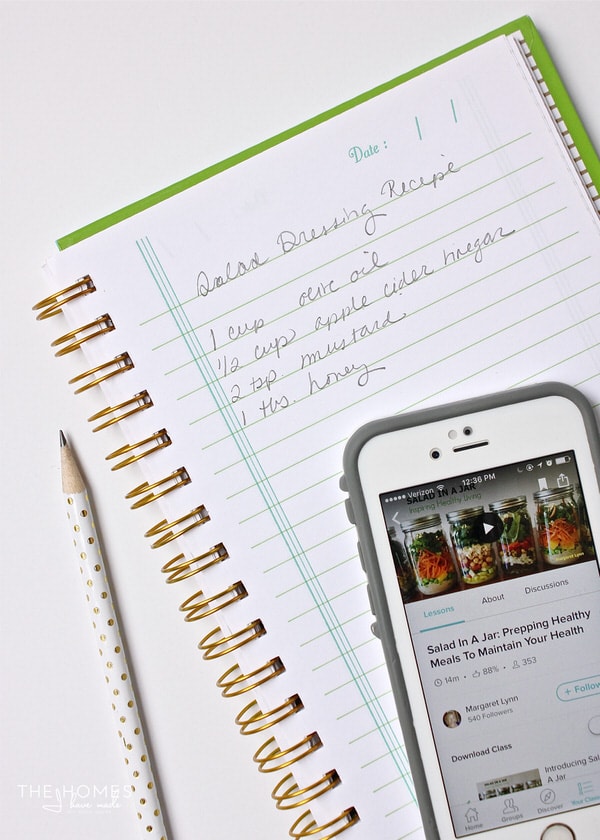 Date: / /
Salad Dressing Recipe
1 cup olive oil
1/2 cup apple cider vinegar
2 tsp. mustard
1 tbs. honey
Verizon 12:36 PM
SALAD IN A JAR
Inspiring Healthy Living
Lessons About Discussions
Salad In A Jar: Prepping Healthy
Meals To Maintain Your Health
14m • 88% • 353
Margaret Lynn
540 Followers
+ Follow
Download Class
Introducing Sala
A Jar
Home Groups Discover Your Classe
THE HOMES
have made